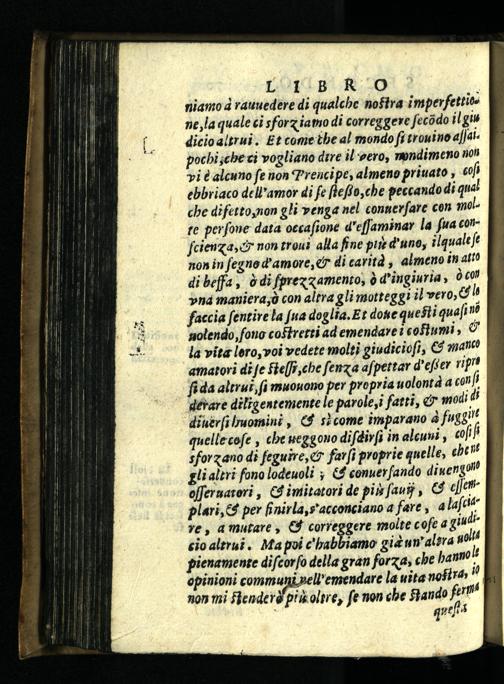 LIBRO
niamo à rauuedere di qualche nostra imperfettio-
ne, la quale ci sforziamo di correggere secōdo il giu
dicio altrui. Et come che al mondo si trouino assai
pochi, che ci vogliano dire il vero, nondimeno non
vi è alcuno se non Prencipe, almeno priuato, così
ebbriaco dell'amor di se stesso, che peccando di qual
che difetto, non gli venga nel conuersare con mol-
te persone data occasione d'essaminar la sua con-
scienza, & non troui alla fine più d'uno, il quale se
non in segno d'amore, & di carità, almeno in atto
di beffa, ò di sprezzamento, ò d'ingiuria, ò con
vna maniera, ò con altra gli motteggi il vero, & le
faccia sentire la sua doglia. Et doue questi quasi nō
uolendo, sono costretti ad emendare i costumi, &
la vita loro, voi vedete molti giudiciosi, & manco
amatori di se stessi, che senza aspettar d'esser ripre
si da altrui, si muouono per propria uolontà a consi
derare diligentemente le parole, i fatti, & modi di
diuersi huomini, & sì come imparano à fuggire
quelle cose, che ueggono disdirsi in alcuni, così si
sforzano di seguire, & farsi proprie quelle, che ne
gli altri sono lodeuoli; & conuersando diuengono
osseruatori, & imitatori de più sauij, & essem-
plari, & per finirla, s'acconciano a fare, a lascia-
re, a mutare, & correggere molte cose a giudi-
cio altrui. Ma poi c'habbiamo già un'altra uolta
pienamente discorso della gran forza, che hanno le
opinioni communi nell'emendare la uita nostra, io
non mi stenderò più oltre, se non che stando ferma
questa